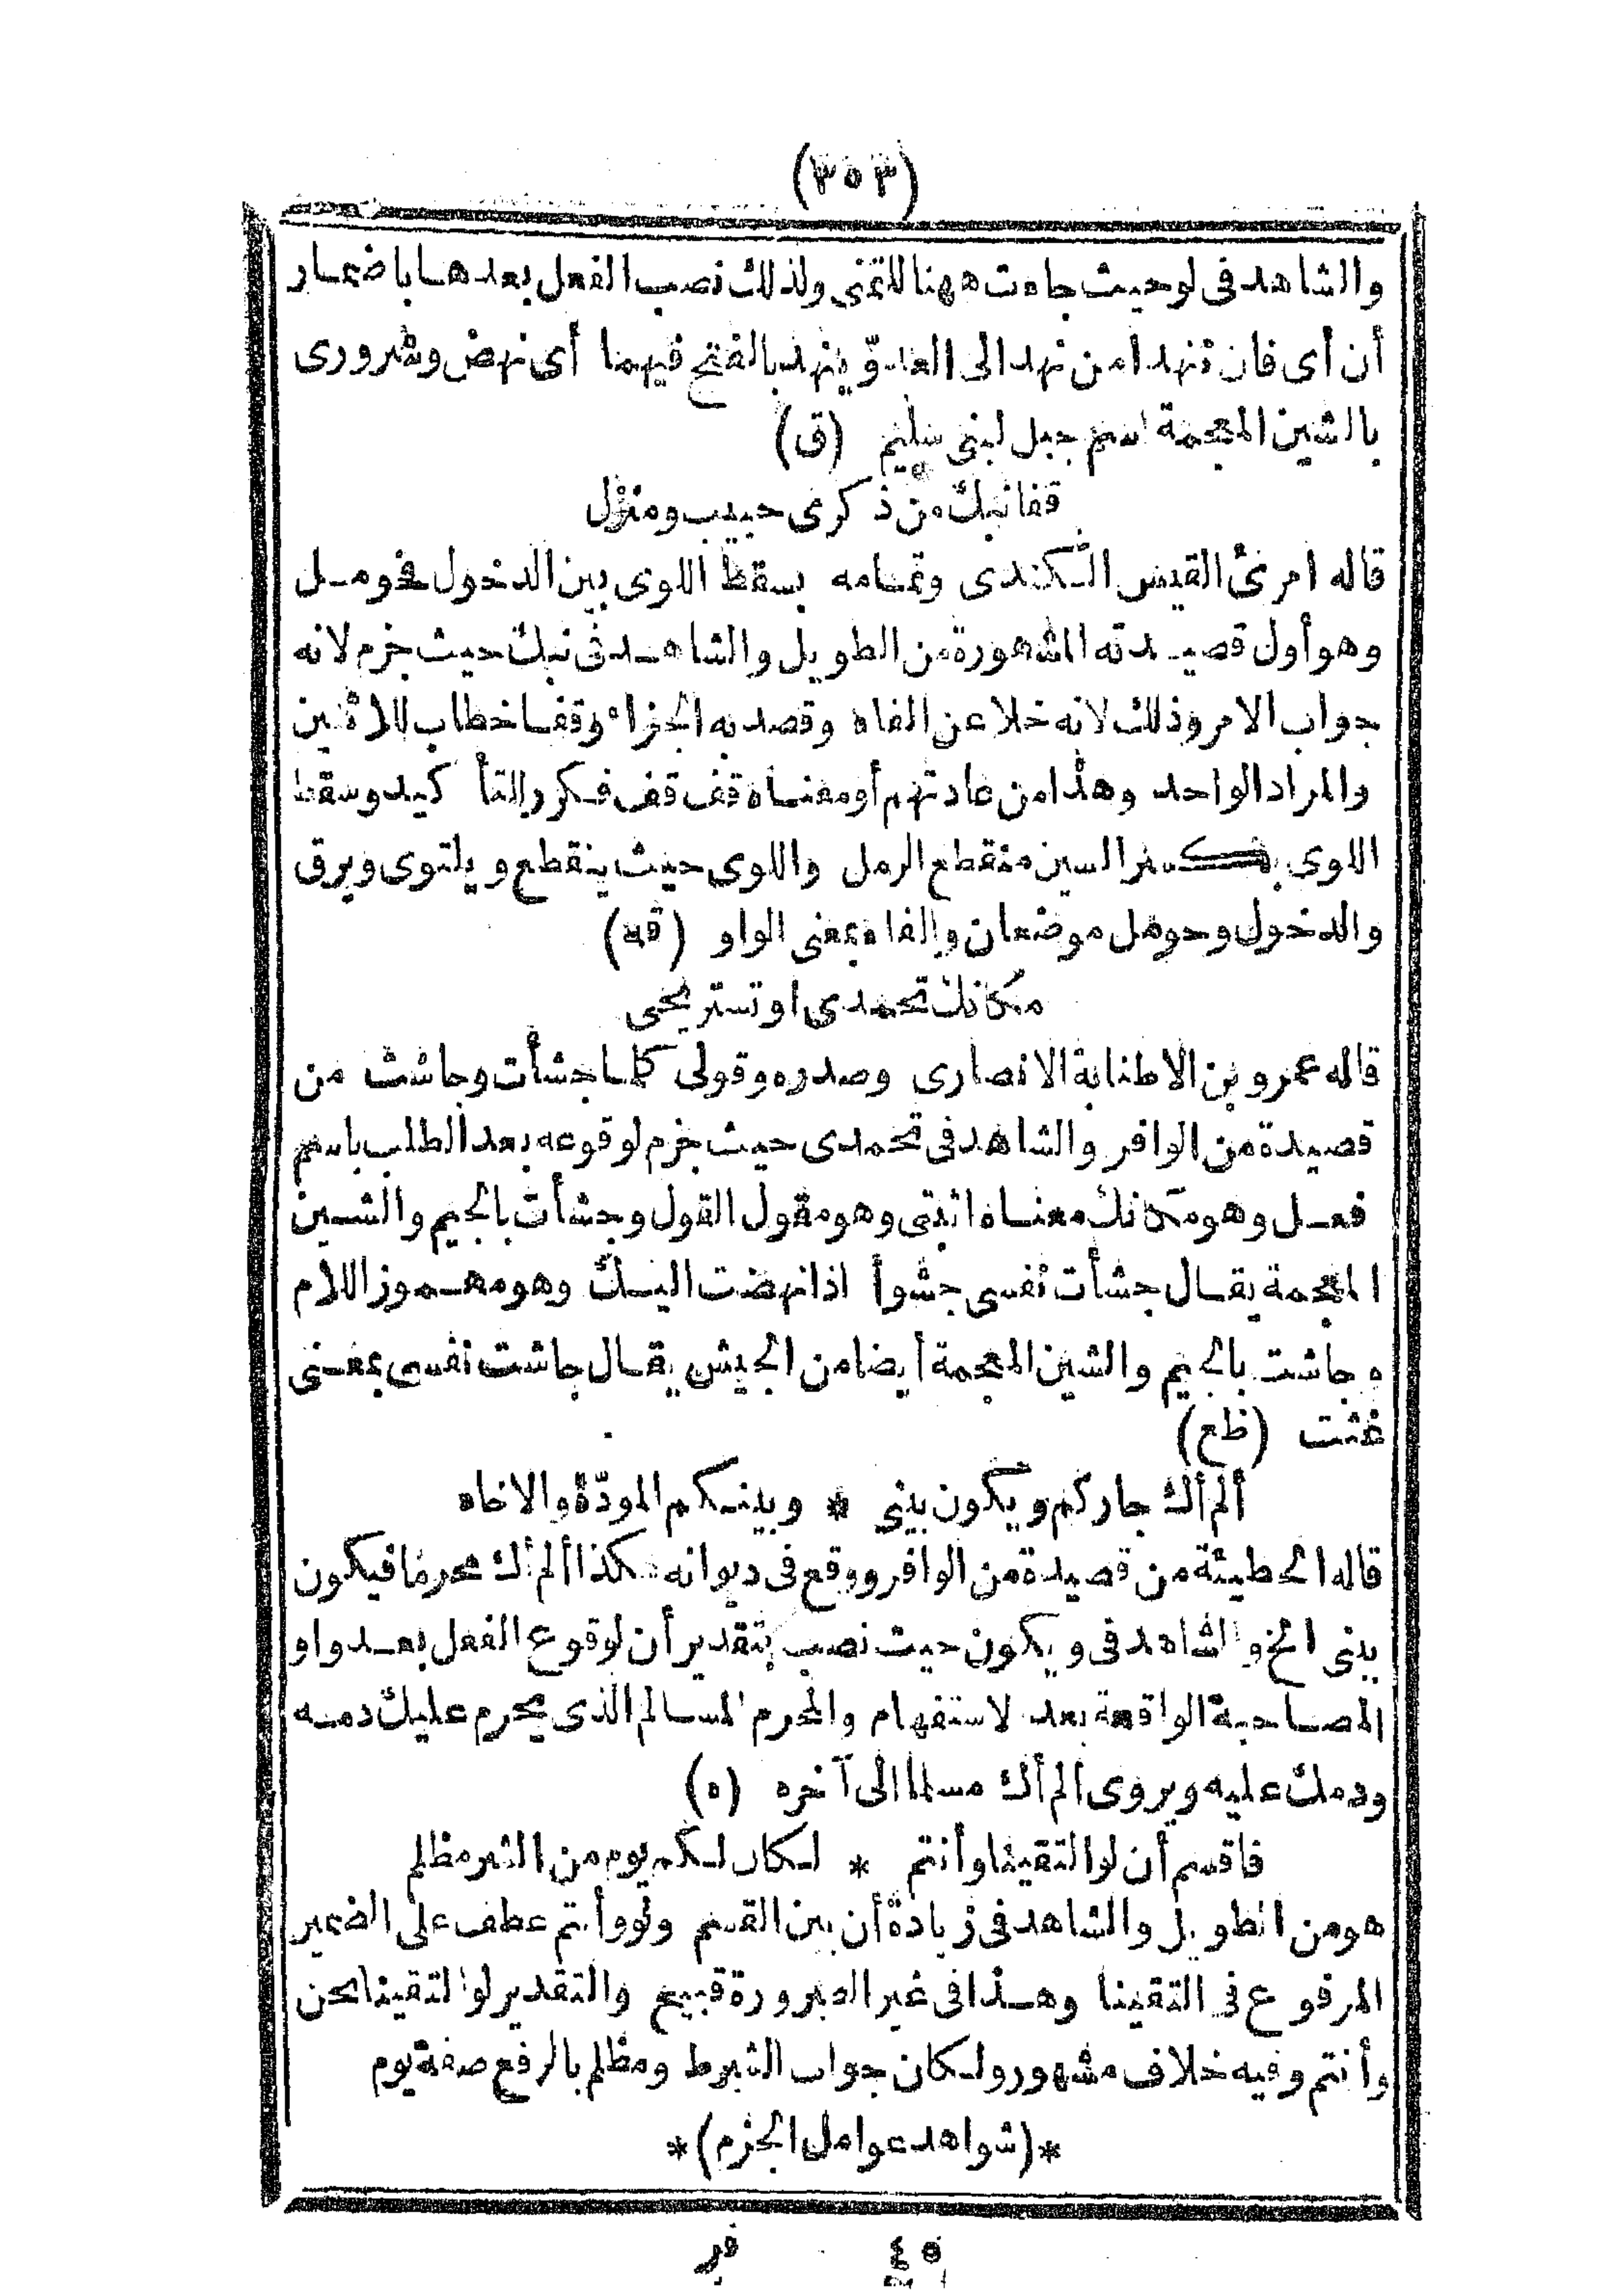 (٣٥٣)
والشاهد فى لو حيث جاءت ههنا للتمنى ولذلك نصب الفعل بعدها باضمار
أن أى فان ننهدا من نهد الى العدوّ ينهد بالفتح فيهما أى نهض وشرورى
بالشين المعجمة اسم جبل لبنى سليم (ق)
قفا نبك من ذكرى حبيب ومنزل
قاله امرئ القيس الكندى وتمامه بسقط اللوى بين الدخول فحومل
وهو أول قصيدته المشهورة من الطويل والشاهد فى نبك حيث جزم لانه
جواب الامر وذلك لانه خلا عن الفاء وقصد به الجزاء وقفا خطاب للاثنين
والمراد الواحد وهذا من عادتهم أو معناه قف قف فكرر للتأكيد وسقط
اللوى بكسر السين منقطع الرمل واللوى حيث ينقطع ويلتوى ويرق
والدخول وحومل موضعان والفاء بمعنى الواو (قه)
مكانك تحمدى او تستريحى
قاله عمرو بن الاطنابة الانصارى وصدره وقولى كلما جشأت وجاشت من
قصيدة من الوافر والشاهد فى تحمدى حيث جزم لوقوعه بعد الطلب باسم
فعل وهو مكانك معناه اثبتى وهو مقول القول وجشأت بالجيم والشين
المعجمة يقال جشأت نفسى جشوأ اذا نهضت اليك وهو مهموز اللام
وجاشت بالجيم والشين المعجمة أيضا من الجيش يقال جاشت نفسى بمعنى
غثت (ظع)
ألم أك جاركم ويكون بينى * وبينكم المودّة والاخاء
قاله الحطيئة من قصيدة من الوافر ووقع فى ديوانه هكذا ألم أك محرما فيكون
بينى الخ والشاهد فى ويكون حيث نصب بتقدير أن لوقوع الفعل بعد واو
المصاحبة الواقعة بعد الاستفهام والمحرم المسالم الذى يحرم عليك دمه
ودمك عليه ويروى ألم أك مسلما الى آخره (ه)
فاقسم أن لو التقينا وأنتم * لكان لكم يوم من الشر مظلم
هو من الطويل والشاهد فى زيادة أن بين القسم ولو وأنتم عطف على الضمير
المرفوع فى التقينا وهذا فى غير الضرورة قبيح والتقدير لو التقينا نحن
وأنتم وفيه خلاف مشهور ولكان جواب الشرط ومظلم بالرفع صفة يوم
*(شواهد عوامل الجزم)*
٤٥ فر